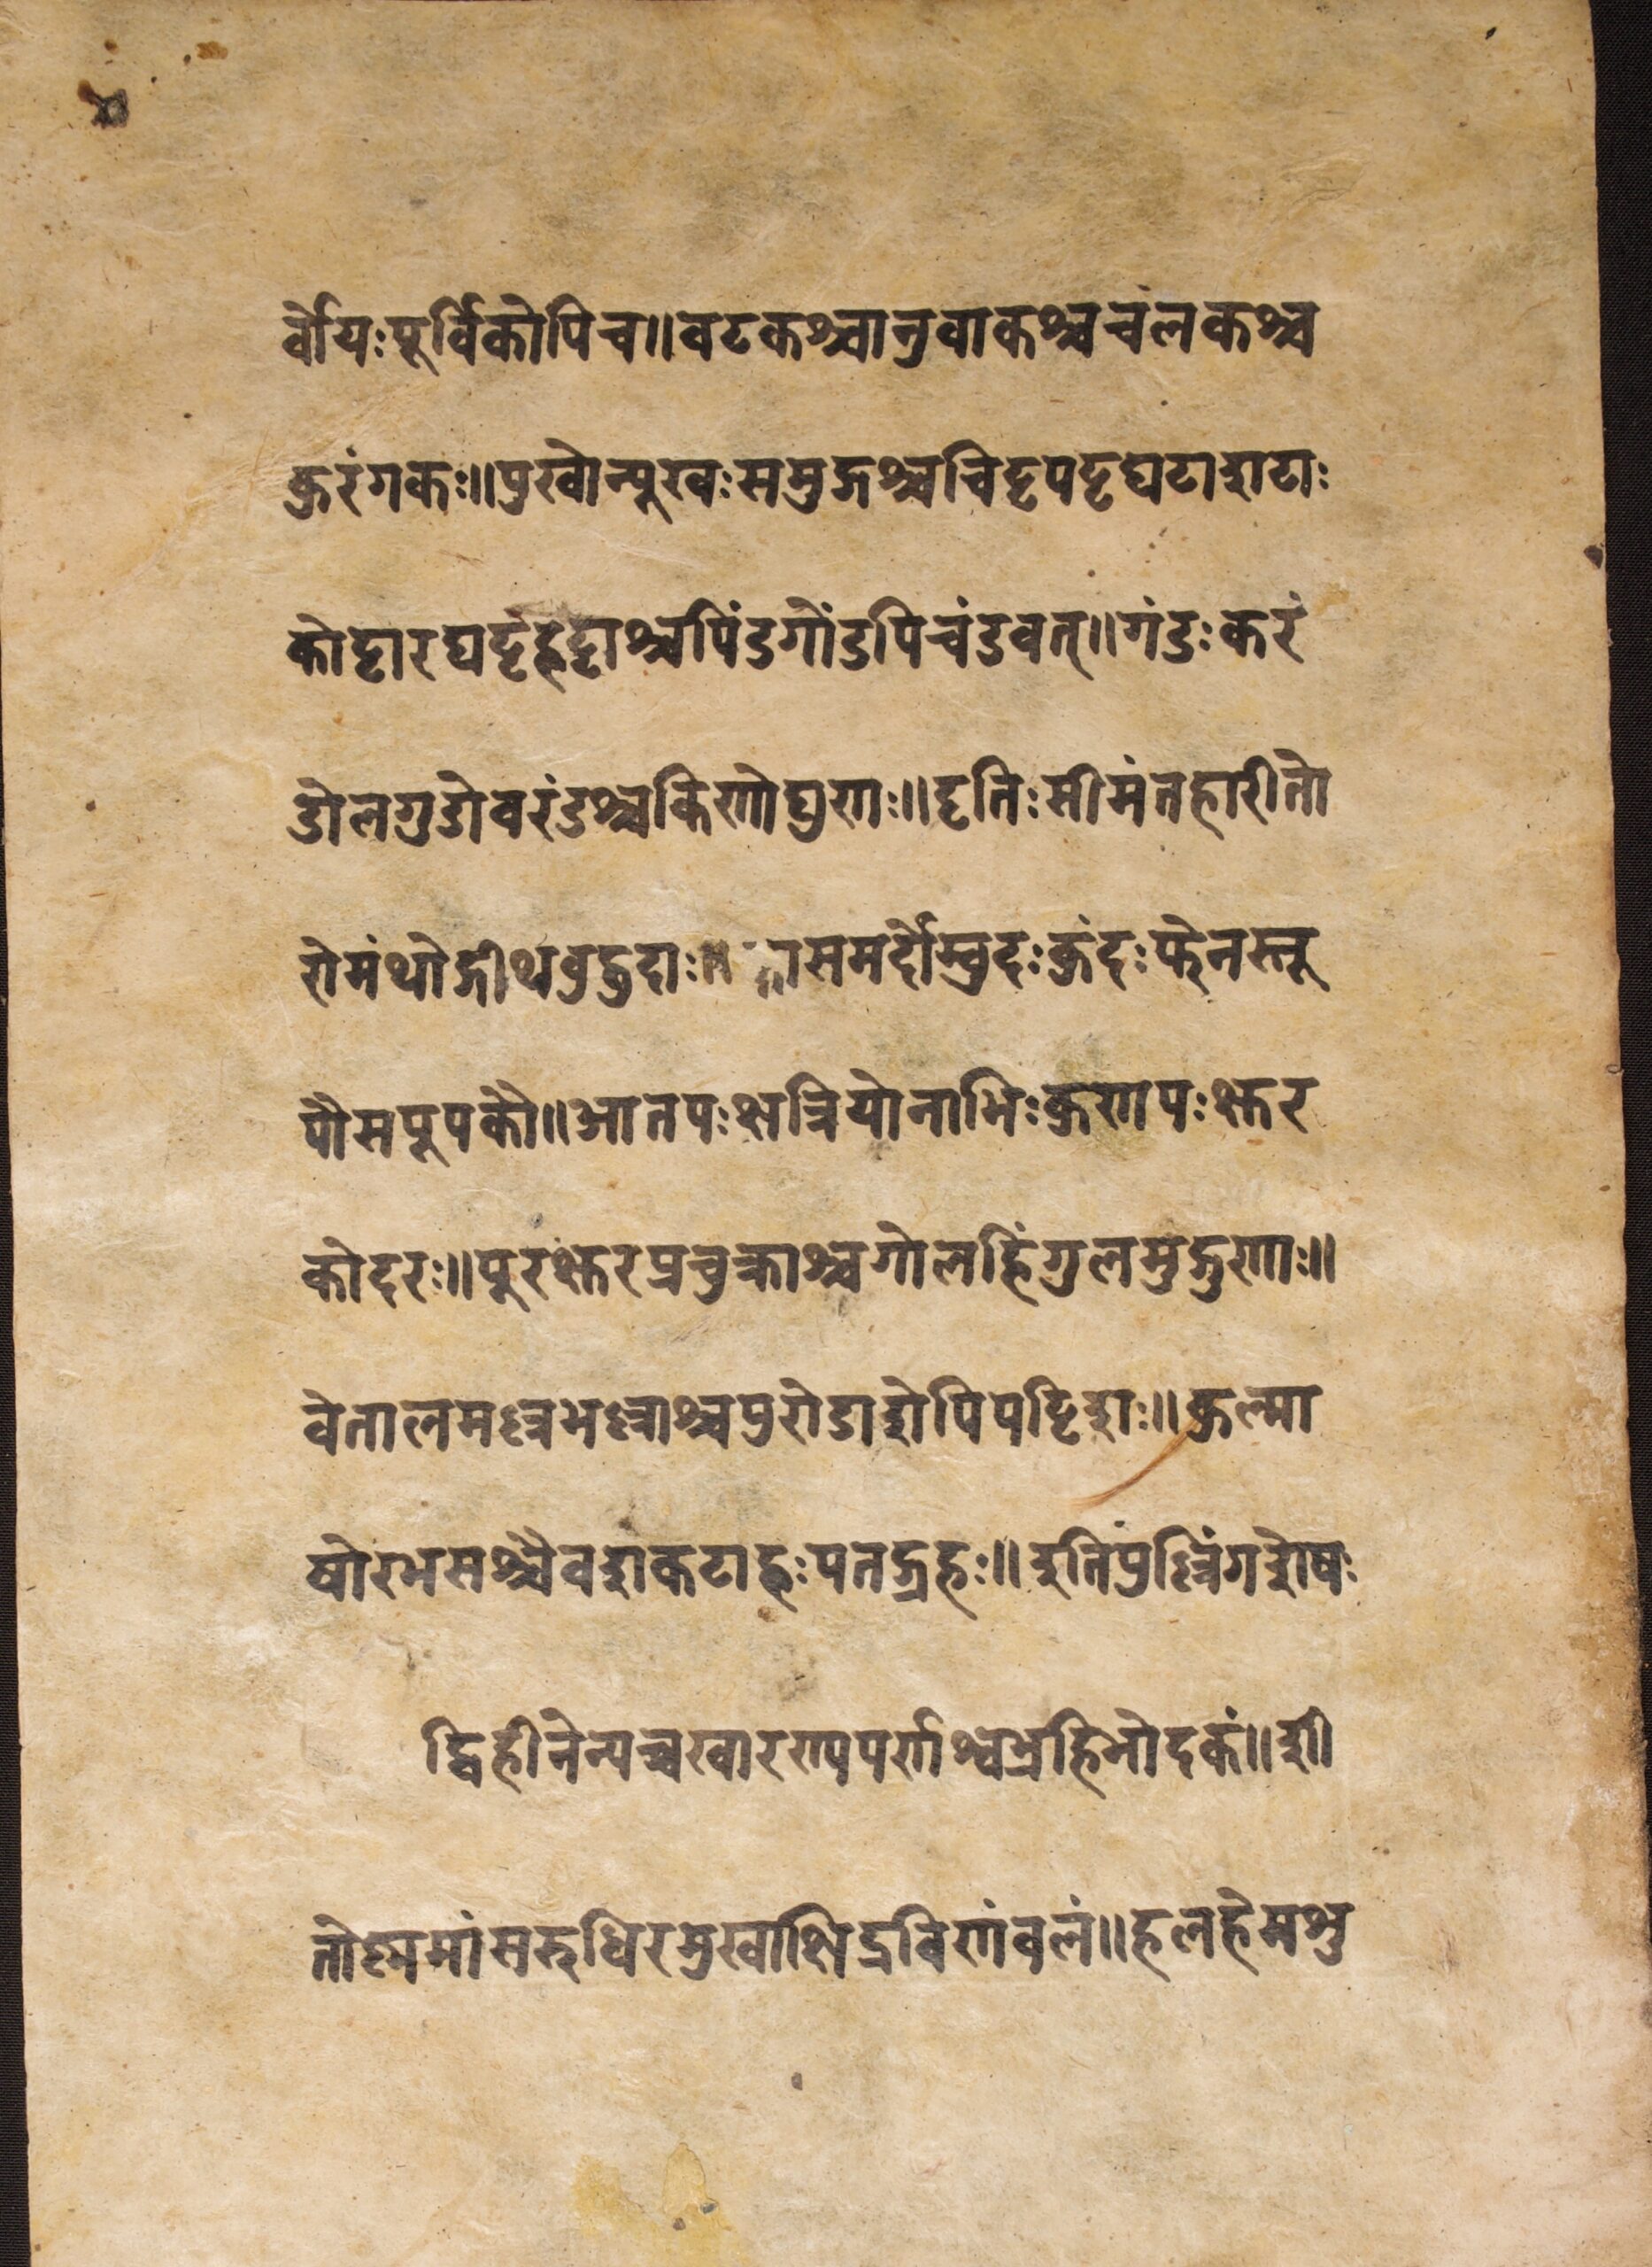 र्वोयःपूर्विकोपिच॥वटकश्चानुवाकश्चचंलकश्च
कुरंगकः॥पुखोन्पूखःसमुद्गश्चचिट्टपट्टघटाशटाः
कोट्टारघर्ट्टहट्टाश्चपिंडगोंडपिचंडवत्॥गंडःकरं
डोलगुडोवरंडश्चकिणोघुणः॥दृतिःसीमंतहारीतो
रोमंथोद्गीथबुद्बुदाः॥ समर्दोम्बुदःकुंदःफेनस्तू
पौसपूपकौ॥आतपःक्षत्रियोनाभिःकुणपःक्षुर
कोदरः॥पूरक्षुरप्रचुक्राश्चगोलहिंगुलमुद्गुणाः॥
वेतालमल्लभल्लाश्चपुरोडाशोपिपट्टिशः॥कुल्मा
षोरभसश्चैवशकटाहःपतद्ग्रहः॥इतिपुंल्लिंगशेषः
द्विहीनेन्यच्चखारण्यपर्णश्वभ्रहिमोदकं॥शी
तोष्णमांसरुधिरमुखाक्षिद्रविणंवलं॥हलहेमशु